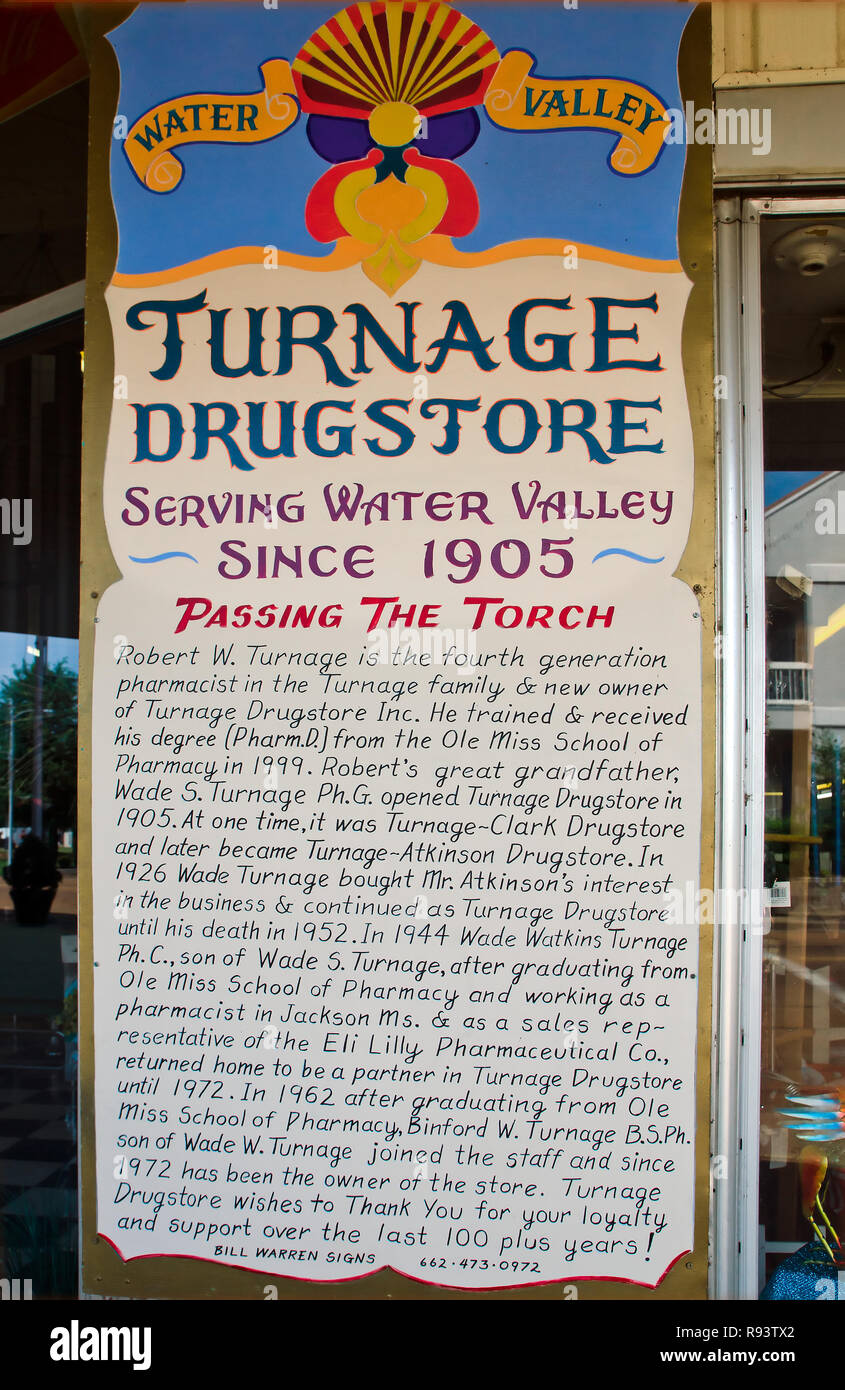 WATER VALLEY
TURNAGE
DRUGSTORE
SERVING WATER VALLEY
SINCE 1905
PASSING THE TORCH
Robert W. Turnage is the fourth generation
pharmacist in the Turnage family & new owner
of Turnage Drugstore Inc. He trained & received
his degree (Pharm.D.) from the Ole Miss School of
Pharmacy in 1999. Robert's great grandfather,
Wade S. Turnage Ph.G. opened Turnage Drugstore in
1905. At one time, it was Turnage~Clark Drugstore
and later became Turnage~Atkinson Drugstore. In
1926 Wade Turnage bought Mr. Atkinson's interest
in the business & continued as Turnage Drugstore
until his death in 1952. In 1944 Wade Watkins Turnage
Ph.C., son of Wade S. Turnage, after graduating from
Ole Miss School of Pharmacy and working as a
pharmacist in Jackson Ms. & as a sales rep~
resentative of the Eli Lilly Pharmaceutical Co.,
returned home to be a partner in Turnage Drugstore
until 1972. In 1962 after graduating from Ole
Miss School of Pharmacy, Binford W. Turnage B.S.Ph.
son of Wade W. Turnage joined the staff and since
1972 has been the owner of the store. Turnage
Drugstore wishes to Thank You for your loyalty
and support over the last 100 plus years!
BILL WARREN SIGNS 662·473·0972
alamy
Image ID: R93TX2
www.alamy.com